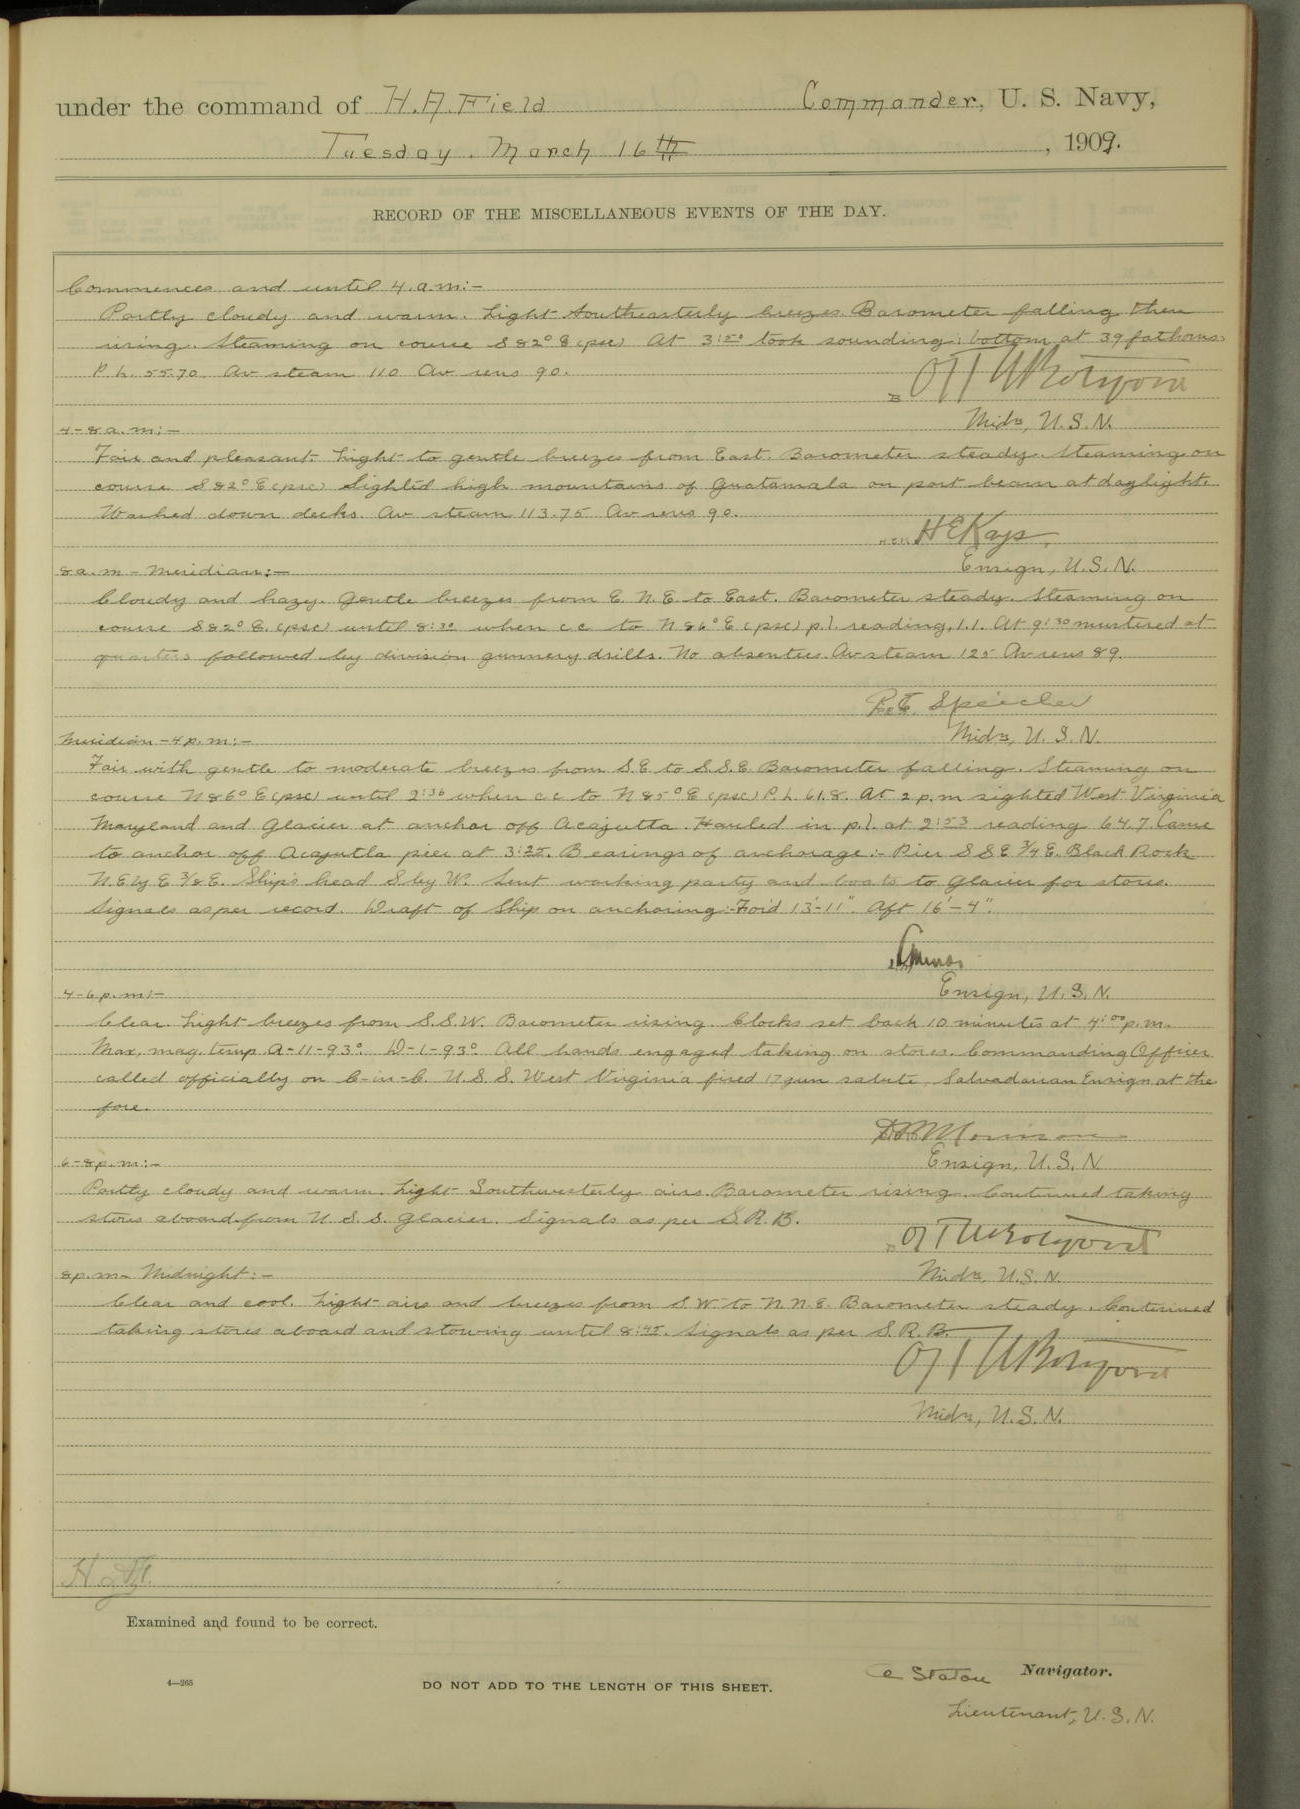 under the command of H.A. Field Commander, U. S. Navy,
Tuesday. March 16th, 1909.
RECORD OF THE MISCELLANEOUS EVENTS OF THE DAY.
Commences and until 4. a.m:-
Partly cloudy and warm. Light Southeasterly breezes. Barometer falling then
rising. Steaming on course S 82° E (psc) At 3:50 took sounding; bottom at 39 fathoms.
P. L. 55.70. Av steam 110 Av revs 90.
Mid'n, U.S.N.
4-8 a.m:-
Fair and pleasant. Light to gentle breezes from East. Barometer steady. Steaming on
course S 82° E (psc) Sighted high mountains of Guatamala on port beam at daylight.
Washed down decks. Av steam 113.75 Av revs 90.
H E Kays,
Ensign, U.S.N.
8 a.m - Meridian:-
Cloudy and hazy. Gentle breezes from E. N. E to East. Barometer steady. Steaming on
course S 82° E. (psc) until 8:30 when c c to N 86° E (psc) p.l. reading, 1.1. At 9:30 mustered at
quarters followed by division gunnery drills. No absentees. Av steam 125 Av revs 89.
R. E. Speicher
Mid'n, U.S.N.
Meridian - 4 p.m:-
Fair with gentle to moderate breezes from S.E. to S.S.E. Barometer falling. Steaming on
course N 86° E (psc) until 2:36 when c c to N 85° E (psc) P. L. 61.8. At 2 p.m sighted West Virginia
Maryland and Glacier at anchor off Acajutla. Hauled in p.l. at 2:53 reading 64.7 Came
to anchor off Acajutla pier at 3:25. Bearings of anchorage:- Pier S S E 3/4 E. Black Rock
N. E by E 3/8 E. Ship's head S by W. Sent working party and boats to Glacier for stores.
Signals as per record. Draft of Ship on anchoring:- For'd 13'-11". Aft 16'-4".
Ensign, U.S.N.
4-6 p.m:-
Clear. Light breezes from S.S.W. Barometer rising. Clocks set back 10 minutes at 4:00 p.m.
Max. mag. temp A-11-93°. D-1-93° All hands engaged taking on stores. Commanding Officer
called officially on C-in-C. U.S.S. West Virginia fired 17 gun salute, Salvadorian Ensign at the
fore.
Ensign, U.S.N.
6-8 p.m:-
Partly cloudy and warm. Light Southwesterly airs. Barometer rising. Continued taking
stores aboard from U.S.S. Glacier. Signals as per S.R.B.
Mid'n, U.S.N.
8 p.m - Midnight:-
Clear and cool. Light airs and breezes from S.W. to N.N.E. Barometer steady. Continued
taking stores aboard and stowing until 8:45. Signals as per S.R.B.
Mid'n, U.S.N.
Examined and found to be correct.
Staton Navigator.
4—265
DO NOT ADD TO THE LENGTH OF THIS SHEET.
Lieutenant, U.S.N.